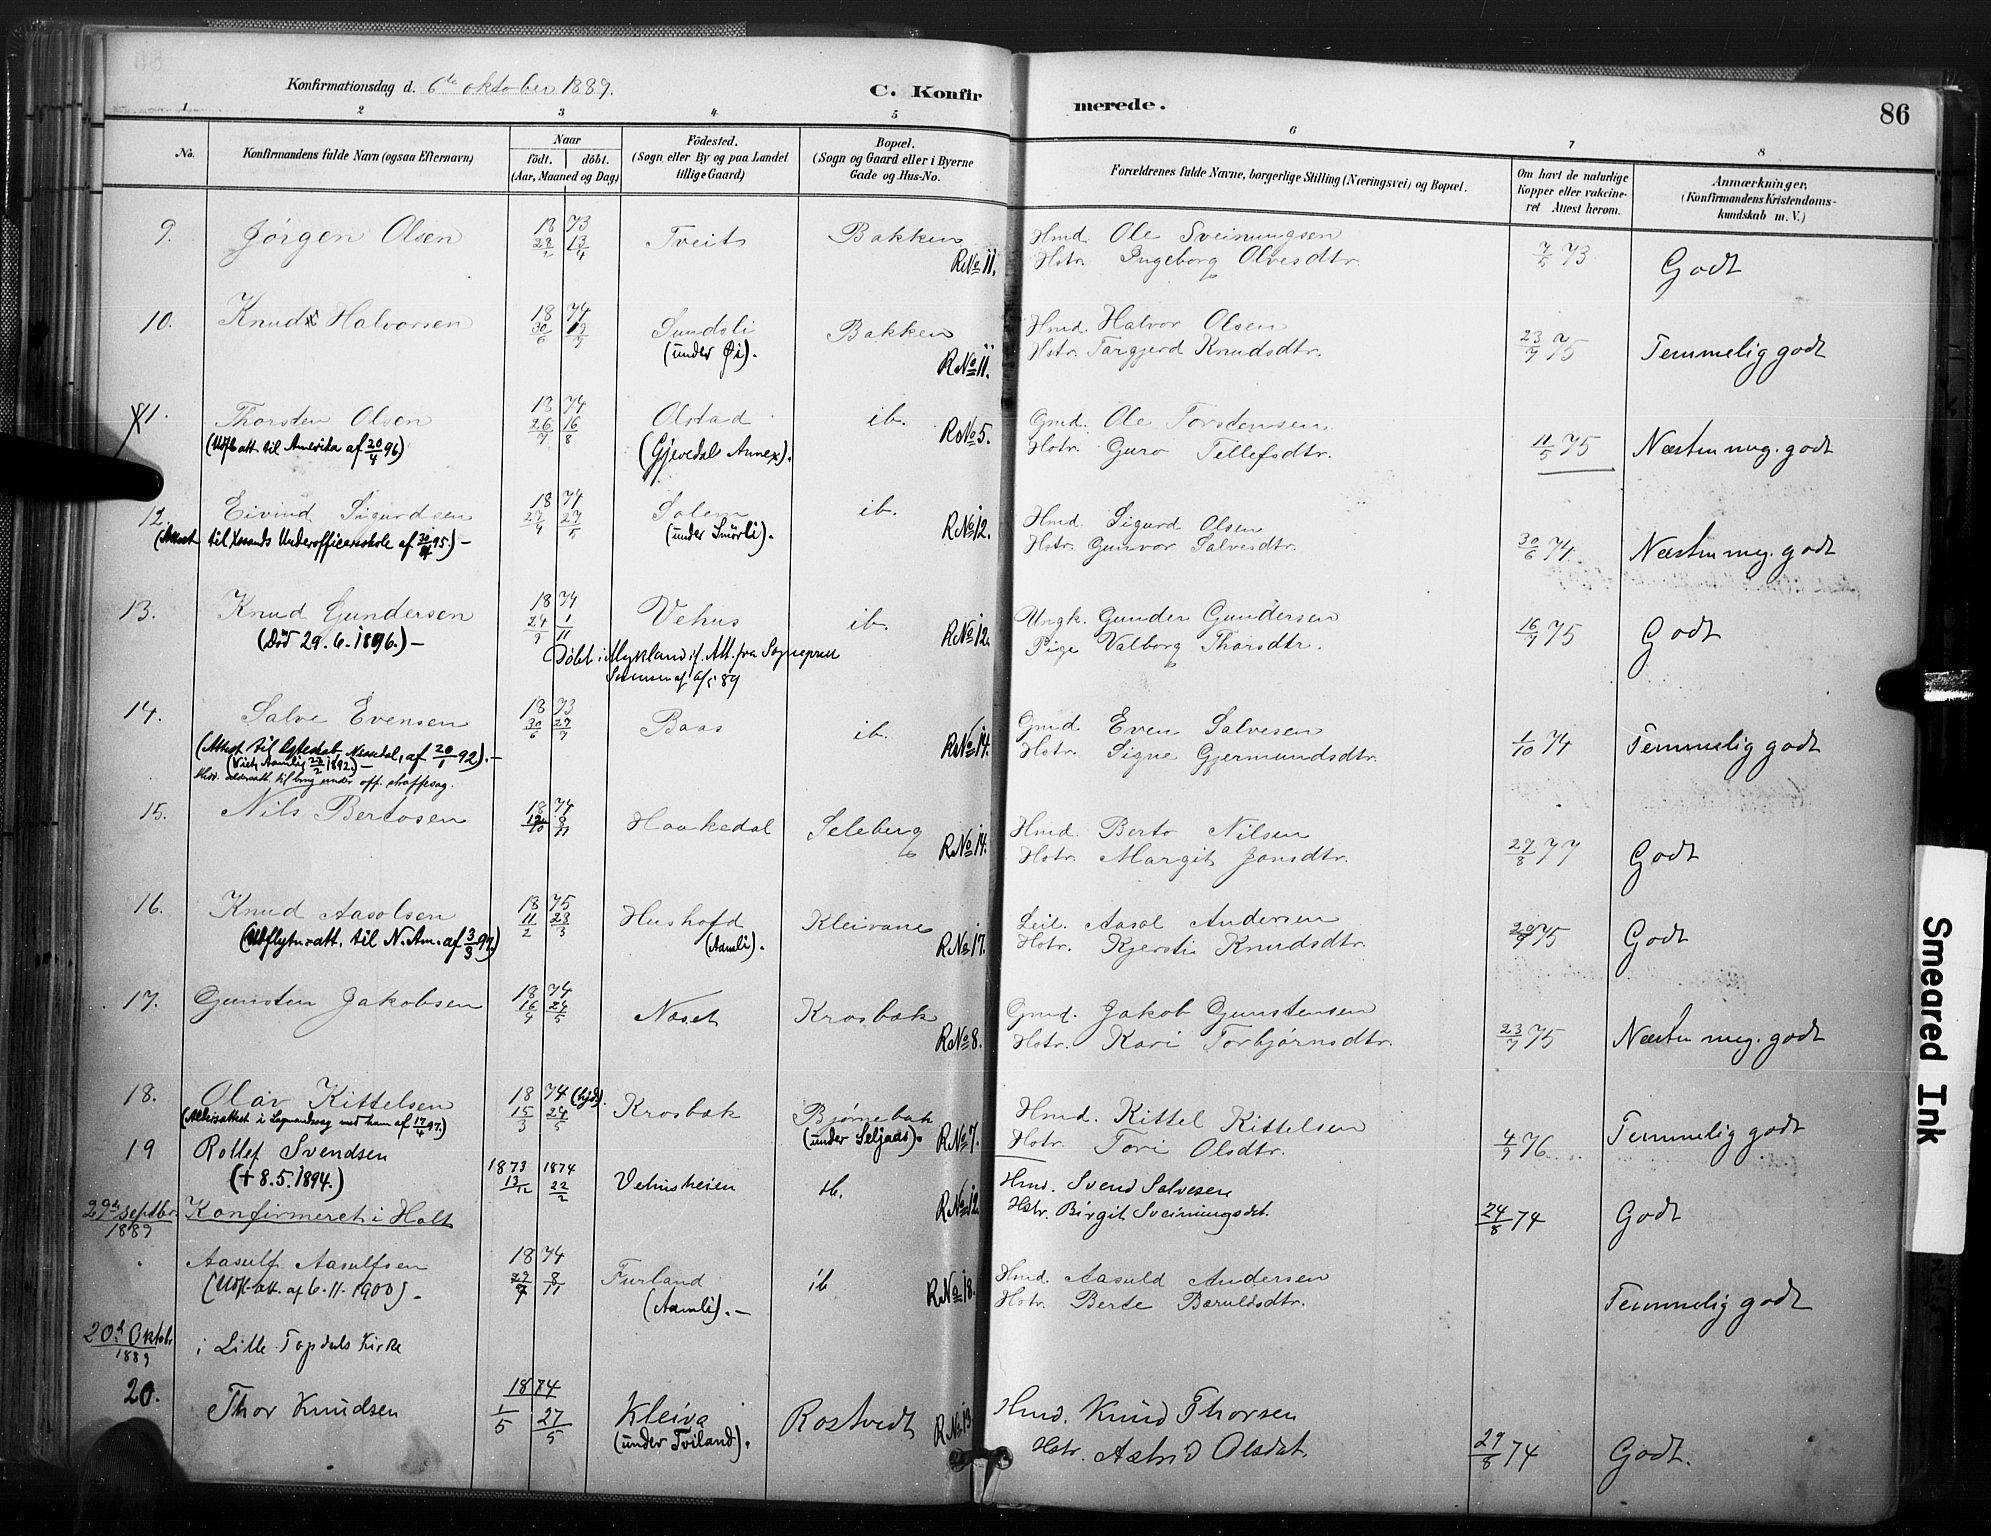 Konfirmationsdag d. 6te oktober 1889.
C. Konfirmerede.
86
1 2 3 4 5 6 7 8
No.
Konfirmandens fulde Navn (ogsaa Efternavn)
Naar
födt. döbt.
(Aar, Maaned og Dag)
Födested.
(Sogn eller By og paa Landet
tillige Gaard)
Bopæl.
(Sogn og Gaard eller i Byerne
Gade og Hus-No.
Forældrenes fulde Navne, borgerlige Stilling (Næringsvei) og Bopæl.
Om havt de naturlige
Kopper eller vakcine-
ret Attest herom.
Anmærkninger,
(Konfirmandens Kristendoms-
kundskab m. V.)
9. Jörgen Olsen 18 73 28/2 13/4 Tveit Bakken R№ 11. Hmd. Ole Sveinungsen 7/5 73 Godt
Hstr. Ingeborg Olvesdtr.
10. Knud Halvorsen 18 74 30/6 Sundsli Bakken R№ 11. Hmd. Halvor Olsen 23/7 75 Temmelig godt
(under Øi). Hstr. Targjerd Knudsdtr.
11. Thorsten Olsen 18 74 26/7 16/8 Olstad ib. R№ 5. Gmd. Ole Torstensen 11/5 75 Næsten meg. godt
(Udfl. att. til Amerika af 20/4 96) (Gjevedal Annex). Hstr. Guro Tellefsdtr.
12. Eivind Sigurdsen 18 74 27/4 27/5 Solem ib. R№ 12. Hmd. Sigurd Olsen 30/6 74 Næsten meg. godt
(Attest til Xsands Underofficersskole af 30/4 95) – (under Smörli). Hstr. Gunvor Salvesdtr.
13. Knud Gundersen 18 74 24/9 1/11 Vehus ib. R№ 12. Ungk. Gunder Gundersen 16/7 75 Godt
(Död 29.6.1896.) – Pige Valborg Thorsdtr.
Döbt i Mykland if. Att. fra Sogneprest
14. Salve Evensen 18 73 30/6 27/7 Baas ib. R№ 14. Gmd. Even Salvesen 1/10 74 Temmelig godt
(Attest til Ægteskab, Nissedal, af 20/1 92). – Hstr. Signe Gjermundsdtr.
(Viet, Aamli 1892.) –
15. Nils Bertosen 18 74 Haakedal Seleberg R№ 14. Hmd. Berto Nilsen 27/8 77 Godt
Hstr. Margit Jonsdtr.
16. Knud Aasolsen 18 75 11/2 28/3 Hushofd Kleivane R№ 17. Leil. Aasol Andersen 75 Godt
(Udflytn.att. til N. Am. af 3/3 97.) (Aamli). Hstr. Kjersti Knudsdtr.
17. Gunsten Jakobsen 18 74 16/4 24/5 Næset Krosbæk R№ 8. Gmd. Jakob Gunstensen 23/7 75 Næsten meg. godt
Hstr. Kari Torbjörnsdtr.
18. Olav Kittelsen 18 74 15/3 24/5 Krosbæk Bjørnebæk R№ 7. Hmd. Kittel Kittelsen 4/9 76 Temmelig godt
(Aldersattest i Lagmandssag med ham af 17/4 97.) (under Seljaas). Hstr. Tori Olsdtr.
19 Rollef Svendsen 1873 1874 13/12 22/2 Vehusheien ib. R№ 12. Hmd. Svend Salvesen 24/8 74 Godt
(+ 8.5.1894.) Hstr. Birgit Sveinungsdt.
29de septbr. 1889 Konfirmeret i Holt
Aasulf Aasulfsen 18 74 8/11 Furland ib R№ 18. Hmd. Aasuld Andersen Temmelig godt
(Udfl. att. af 6.11.1900). (Aamli). – Hstr. Berte Baruldsdtr.
20d Oktobr 1889 i Lille Topdals Kirke
20. Thor Knudsen 1874 1/5 27/5 Kleiva Rostvedt R№ 13 Hmd. Knud Thorsen 29/8 74 Godt.
(under Tviland). Hstr. Astrid Olsdat.
Smeared Ink